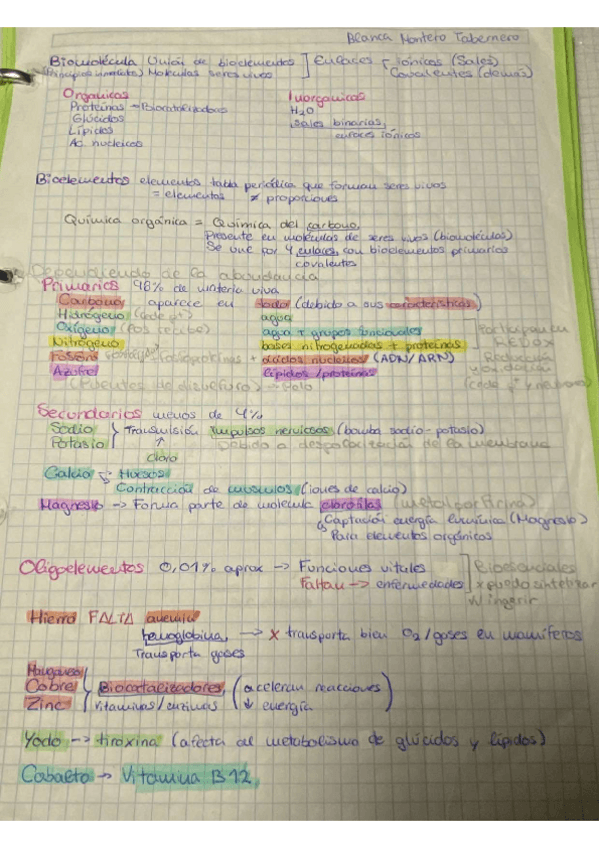 Blanca Montero Tabernero
Biomolécula Unión de bioelementos ] Enlaces { iónicos (Sales)
(Principios inmediatos) Moléculas seres vivos Covalentes (demás)
Organicas Inorganicas
Proteínas → Biocatalizadores H2O
Glúcidos Sales binarias,
Lípidos enlaces iónicos
Ac. nucleicos
Bioelementos elementos tabla periódica que forman seres vivos
= elementos ≠ proporciones
Química orgánica = Química del carbono,
Presente en moléculas de seres vivos (biomoléculas)
Se une por 4 enlaces, con bioelementos primarios
covalentes
Dependiendo de la abundancia
Primarios 98% de materia viva
Carbono aparece en todo (debido a sus características)
Hidrógeno (cede e-) agua
Oxígeno (los recibe) agua + grupos funcionales Participan en
Nitrógeno bases nitrogenadas + proteínas REDOX
Fósforo + ácidos nucleicos (ADN/ARN) Reducción
Azufre lípidos/proteínas y oxidación
(Puentes de disulfuro) → Pelo
Secundarios menos de 4%
Sodio } Transmisión impulsos nerviosos (bomba sodio-potasio)
Potasio ↑ Debido a despolarización de la membrana
Cloro
Calcio Huesos
Contracción de músculos (iones de calcio)
Magnesio → Forma parte de molécula clorofilas (metalporfirina)
Captación energía lumínica (Magnesio)
Para elementos orgánicos
Oligoelementos 0,01% aprox → Funciones vitales ] Bioesenciales
Faltan → enfermedades x puedo sintetizar
ingerir
Hierro FALTA anemia
hemoglobina, → x transporta bien O2/gases en mamíferos
Transporta gases
Manganeso
Cobre } Biocatalizadores (aceleran reacciones
Zinc Vitaminas/enzimas ↓ energía)
Yodo → tiroxina (afecta al metabolismo de glúcidos y lípidos)
Cobalto → Vitamina B12